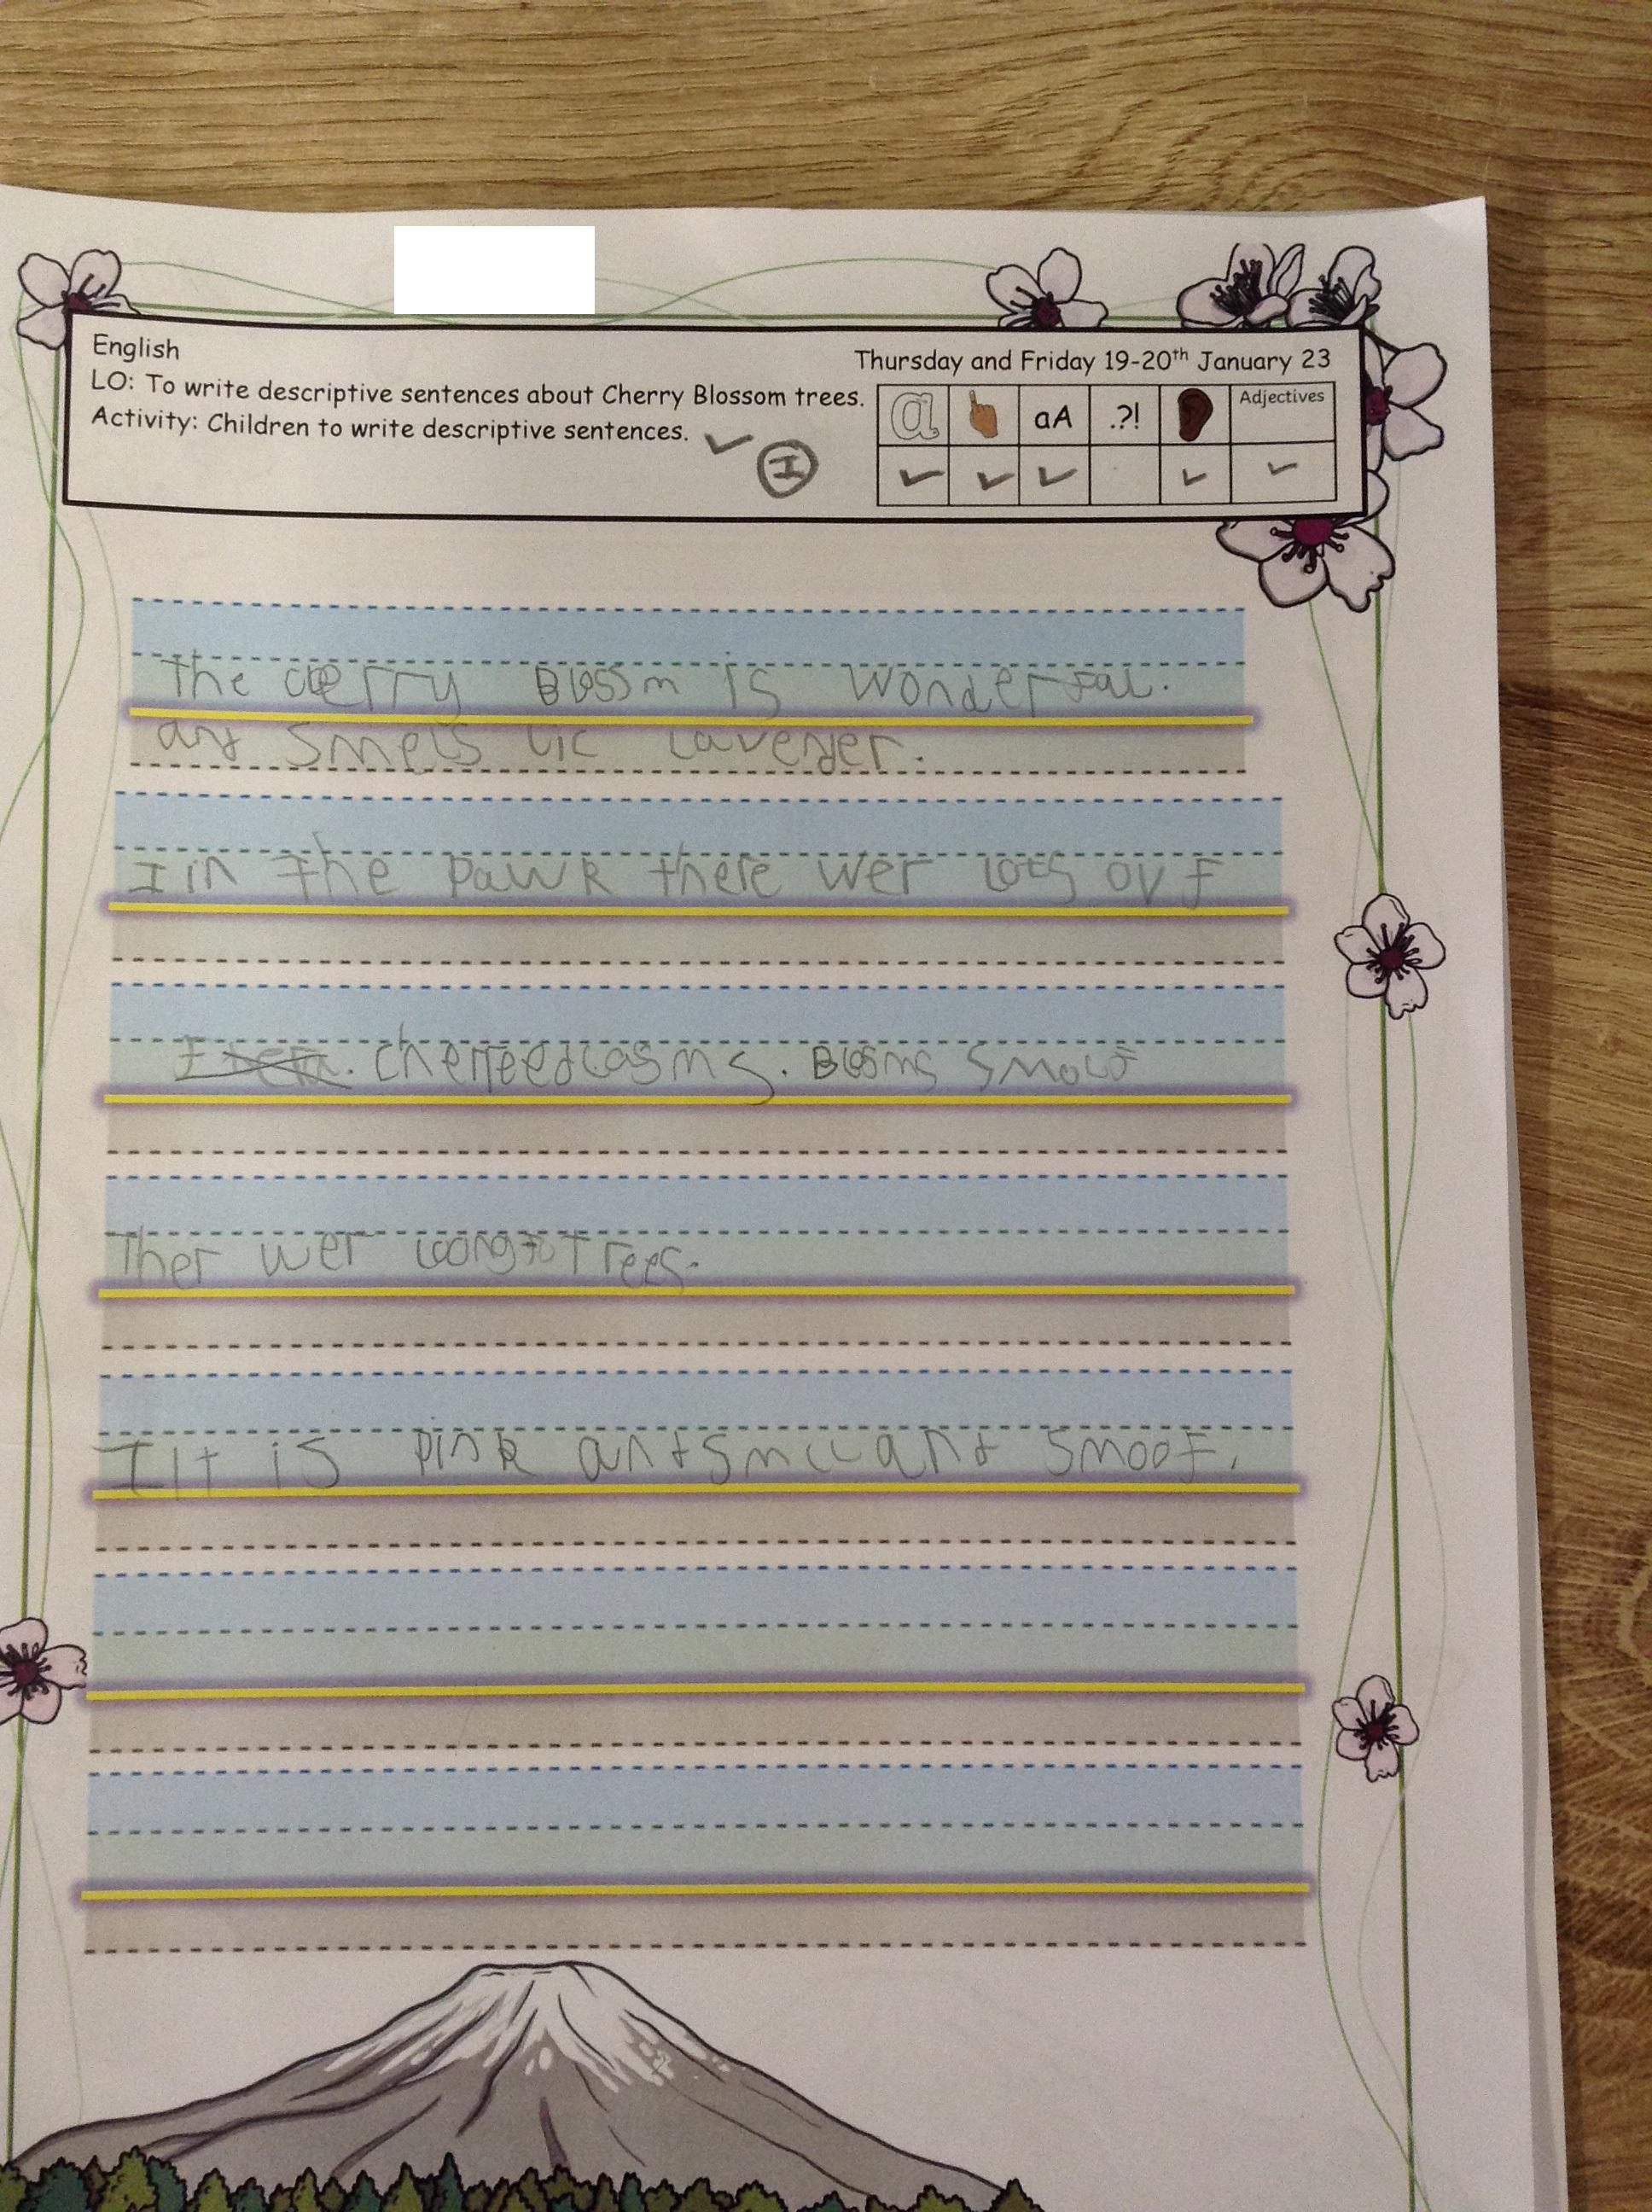 English
Thursday and Friday 19-20th January 23
LO: To write descriptive sentences about Cherry Blossom trees.
Activity: Children to write descriptive sentences.
I
a aA .?! Adjectives
The cherry Blossm is wonderful.
and smels lic lavender.
I in the pawk there wer lots ov f
cherree dlasms. Blosms smol f
Ther wer trees.
I It is pink ant smll ant smoof.